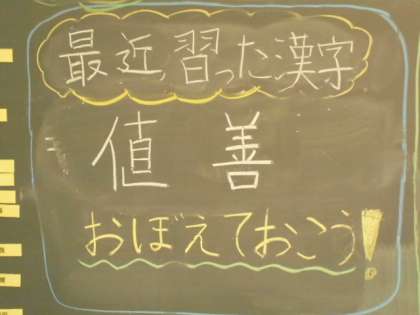 最近習った漢字
値 善
おぼえておこう!